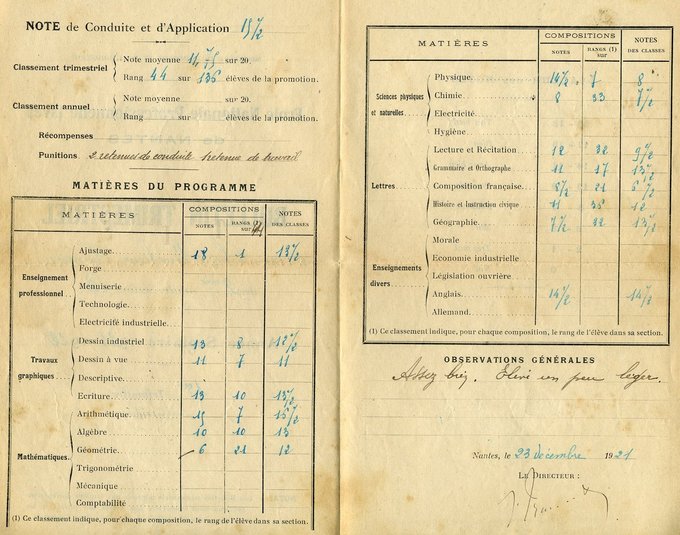 NOTE de Conduite et d'Application 15 1/2
Classement trimestriel
Note moyenne 11,75 sur 20.
Rang 44 sur 136 élèves de la promotion.
Classement annuel
Note moyenne sur 20.
Rang sur élèves de la promotion.
Récompenses
Punitions 2 retenues de conduite retenue de travail
MATIÈRES DU PROGRAMME
MATIÈRES COMPOSITIONS NOTES DES CLASSES
NOTES RANGS (1) sur
Enseignement professionnel
Ajustage 18 1 13 1/2
Forge
Menuiserie
Technologie
Electricité industrielle
Travaux graphiques
Dessin industriel 13 8 12 1/2
Dessin à vue 11 7 11
Descriptive
Ecriture 13 10 13 1/2
Mathématiques
Arithmétique 15 7 15 1/2
Algèbre 10 10 13
Géométrie 6 21 12
Trigonométrie
Mécanique
Comptabilité
(1) Ce classement indique, pour chaque composition, le rang de l'élève dans sa section.
MATIÈRES COMPOSITIONS NOTES DES CLASSES
NOTES RANGS (1) sur
Sciences physiques et naturelles
Physique 14 1/2 7 8
Chimie 8 33 7 1/2
Electricité
Hygiène
Lettres
Lecture et Récitation 12 32 9 1/2
Grammaire et Orthographe 11 17 13 1/2
Composition française 8 1/2 21 6 1/2
Histoire et Instruction civique 11 35 12
Géographie 7 1/2 32 13 1/2
Morale
Enseignements divers
Economie industrielle
Législation ouvrière
Anglais 14 1/2 14 1/2
Allemand
(1) Ce classement indique, pour chaque composition, le rang de l'élève dans sa section.
OBSERVATIONS GÉNÉRALES
Assez bien. Elève un peu léger.
Nantes, le 23 décembre 1921
LE DIRECTEUR :